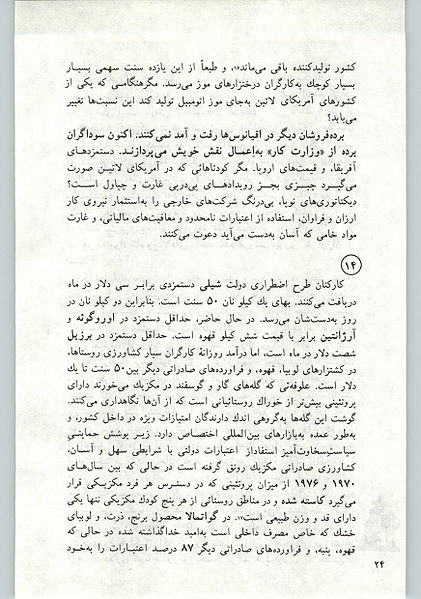 کشور تولیدکننده باقی می‌ماند۱۸، و طبعاً از این یازده سنت سهمی بسیار
بسیار کوچك به‌کارگران درختزارهای موز می‌رسد. مگرهنگامی که یکی از
کشورهای آمریکای لاتین به‌جای موز اتومبیل تولید کند این نسبت‌ها تغییر
می‌یابد؟
برده‌فروشان دیگر در اقیانوس‌ها رفت و آمد نمی‌کنند. اکنون سوداگران
برده از «وزارت کار» به‌اِعمال نقش خویش می‌پردازند. دستمزدهای
آفریقا، و قیمت‌های اروپا. مگر کودتاهائی که در آمریکای لاتین صورت
می‌گیرد چیزی بجز رویدادهای پی‌درپی غارت و چپاول است؟
دیکتاتوری‌های نوپا، بی‌درنگ شرکت‌های خارجی را به‌استثمار نیروی کار
ارزان و فراوان، استفاده از اعتبارات نامحدود و معافیت‌های مالیاتی، و غارت
مواد خامی که آسان به‌دست می‌آید دعوت می‌کنند.
۱۴
کارکنان طرح اضطراری دولت شیلی دستمزدی برابر سی دلار در ماه
دریافت می‌کنند. بهای یك کیلو نان ۵۰ سنت است. بنابراین دو کیلو نان در
روز به‌دست‌شان می‌رسد. در حال حاضر، حداقل دستمزد در اوروگوئه و
آرژانتین برابر با قیمت شش کیلو قهوه است. حداقل دستمزد در برزیل
شصت دلار در ماه است، اما درآمد روزانهٔ کارگران سیار کشاورزی روستاها،
در کشتزارهای لوبیا، قهوه، و فراورده‌های صادراتی دیگر بین۵۰ سنت تا یك
دلار است. علوفه‌ئی که گله‌های گاو و گوسفند در مکزیك می‌خورند دارای
پروتئینی بیش‌تر از خوراك روستائیانی است که از آن‌ها نگاهداری می‌کنند.
گوشت این گله‌ها به‌گروهی اندك دارندگان امتیازات ویژه در داخل کشور، و
به‌طور عمده به‌بازارهای بین‌المللی اختصاص دارد. زیر پوشش حمایتی
سیاستِ‌سخاوت‌آمیز استفاده‌از اعتبارات دولتی با شرایطی سهل و آسان،
کشاورزی صادراتی مکزیك رونق گرفته است در حالی که بین سال‌های
۱۹۷۰ و ۱۹۷۶ از میزان پروتئینی که در دسترس هر فرد مکزیکی قرار
می‌گیرد کاسته شده و در مناطق روستائی از هر پنج کودك مکزیکی تنها یکی
دارای قد و وزن طبیعی است. در گواتمالا محصول برنج، ذرت، و لوبیای
خشك که خاص مصرف داخلی است به‌امید خداگذاشته شده در حالی که
قهوه، پنبه، و فراورده‌های صادراتی دیگر ۸۷ درصد اعتبارات را به‌خود
۲۴